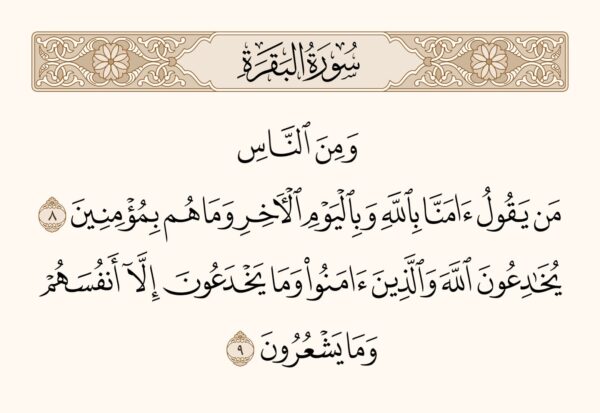 سُورَةُ البَقَرَةِ
وَمِنَ ٱلنَّاسِ
مَن يَقُولُ ءَامَنَّا بِٱللَّهِ وَبِٱلْيَوْمِ ٱلْأَخِرِ وَمَا هُم بِمُؤْمِنِينَ ٨
يُخَٰدِعُونَ ٱللَّهَ وَٱلَّذِينَ ءَامَنُوا۟ وَمَا يَخْدَعُونَ إِلَّآ أَنفُسَهُمْ
وَمَا يَشْعُرُونَ ٩